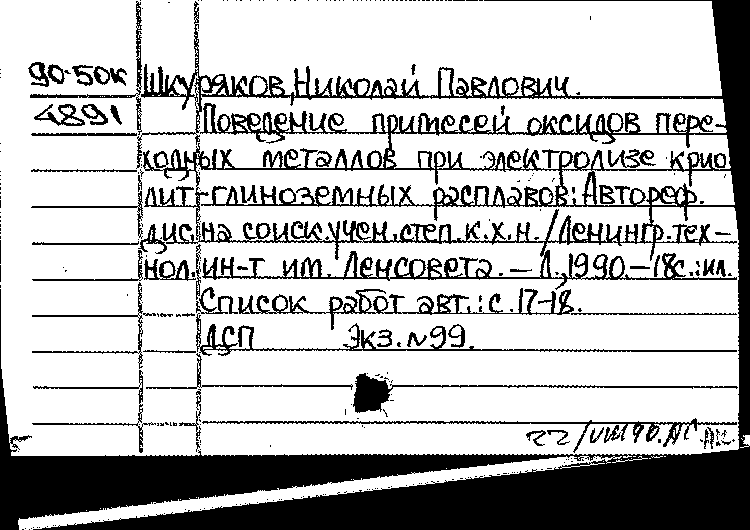 90-50к Шкуряков, Николай Павлович.
4891 Поведение примесей оксидов пере-
ходных металлов при электролизе крио
лит-глиноземных расплавов: Автореф.
дис. на соиск. учен. степ. к.х.н. / Ленингр. тех-
нол. ин-т им. Ленсовета. — Л., 1990. — 18с.: ил.
Список работ авт.: с. 17-18.
ДСП Экз. № 99.
22/VIII 90.